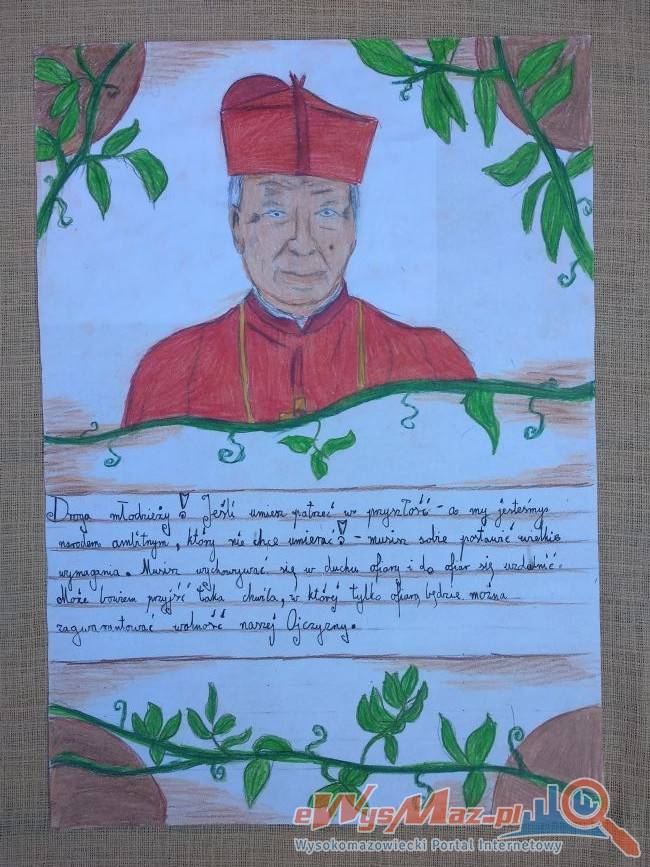 Droga młodzieży! Jeśli umiesz patrzeć w przyszłość - a my jesteśmy
narodem ambitnym, który nie chce umierać! - musisz sobie postawić wielkie
wymagania. Musisz wychowywać się w duchu ofiary i do ofiar się uzdolnić.
Może bowiem przyjść taka chwila, w której tylko ofiarą będzie można
zagwarantować wolność naszej Ojczyzny.
eWysMaz.pl
Wysokomazowiecki Portal Internetowy